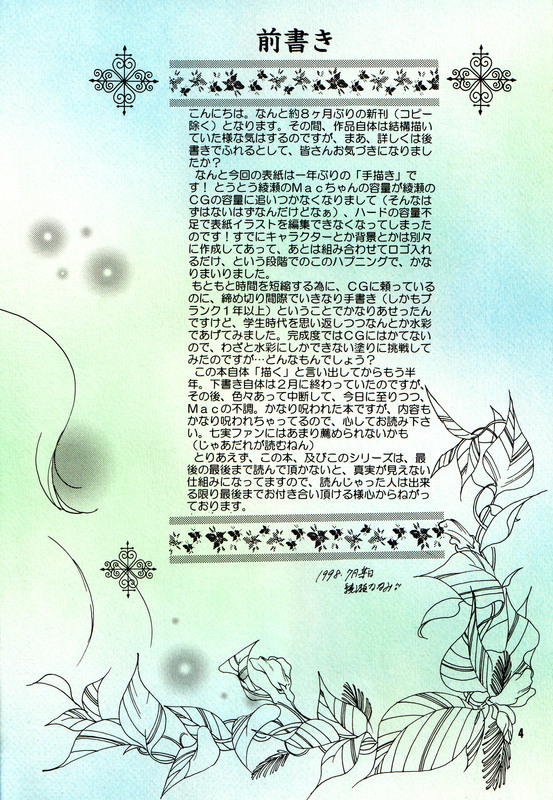 前書き
こんにちは。なんと約８ヶ月ぶりの新刊（コピー
除く）となります。その間、作品自体は結構描い
ていた様な気はするのですが、まあ、詳しくは後
書きでふれるとして、皆さんお気づきになりまし
たか？
なんと今回の表紙は一年ぶりの「手描き」で
す！とうとう綾瀬のＭａｃちゃんの容量が綾瀬の
ＣＧの容量に追いつかなくなりまして（そんなは
ずはないはずなんだけどなぁ）、ハードの容量不
足で表紙イラストを編集できなくなってしまった
のです！すでにキャラクターとか背景とかは別々
に作成してあって、あとは組み合わせてロゴ入れ
るだけ、という段階でのこのハプニングで、かな
りまいりました。
もともと時間を短縮する為に、ＣＧに頼っている
のに、締め切り間際でいきなり手書き（しかもブ
ランク１年以上）ということでかなりあせったん
ですけど、学生時代を思い返しつつなんとか水彩
であげてみました。完成度ではＣＧにはかてない
ので、わざと水彩にしかできない塗りに挑戦して
みたのですが…どんなもんでしょう？
この本自体「描く」と言い出してからもう半
年。下書き自体は２月に終わっていたのですが、
その後、色々あって中断して、今日に至りつつ、
Ｍａｃの不調。かなり呪われた本ですが、内容も
かなり呪われちゃってるので、心してお読み下さ
い。七実ファンにはあまり薦められないかも
（じゃあだれが読むねん）
とりあえず、この本、及びこのシリーズは、最
後の最後まで読んで頂かないと、真実が見えない
仕組みになってますので、読んじゃった人は出来
る限り最後までお付き合い頂ける様心からねがっ
ております。
1998.7月
4